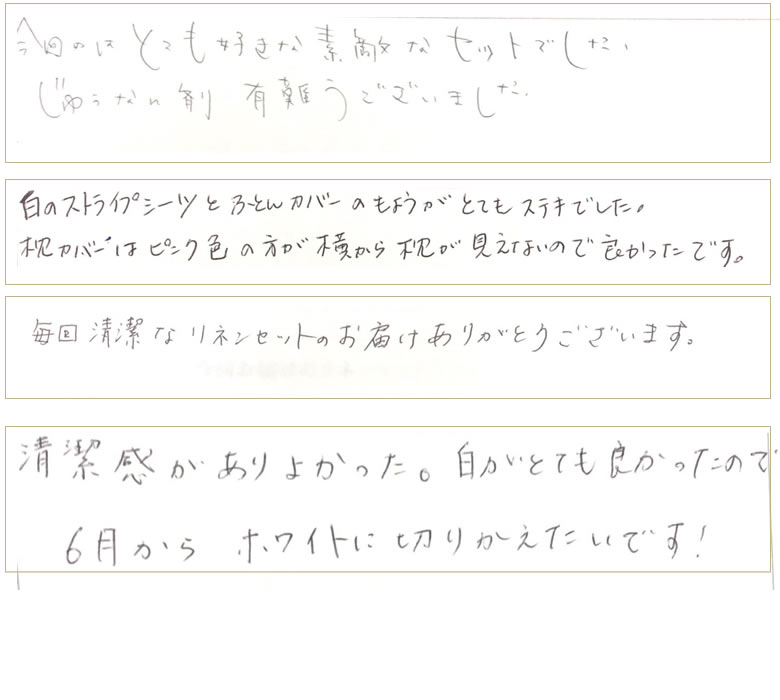 今回のはとても好きな素敵なセットでした。
じゅうなん剤 有難うございました。
白のストライプシーツとふとんカバーのもようがとてもステキでした。
枕カバーはピンク色の方が横から枕が見えないので良かったです。
毎回清潔なリネンセットのお届けありがとうございます。
清潔感がありよかった。白がとても良かったので
6月からホワイトに切りかえたいです!